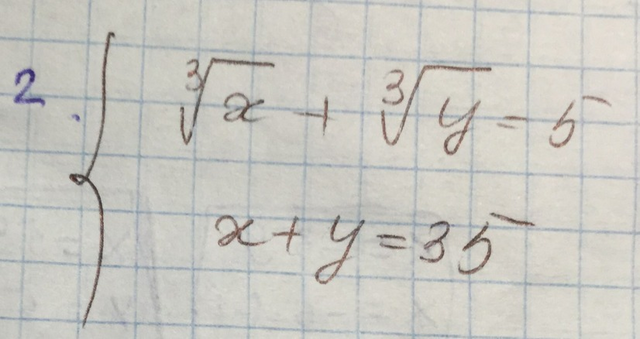 2. { ∛x + ∛y = 5
x + y = 35